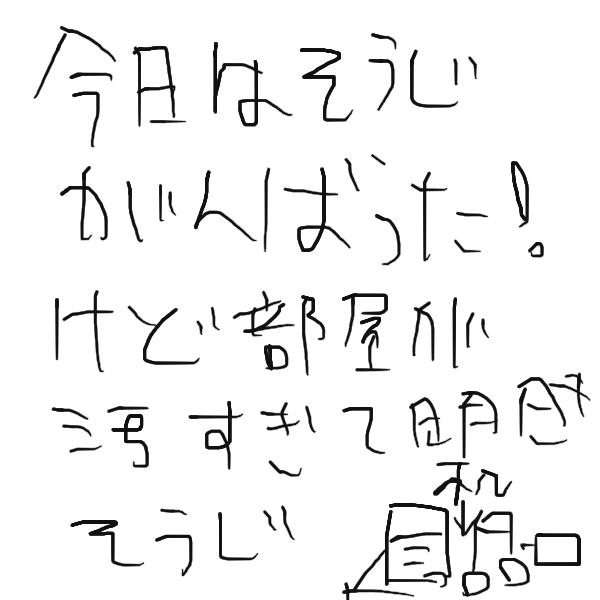 今日はそうじ
がんばった!
けど部屋が
汚すぎて明日も
そうじ
私